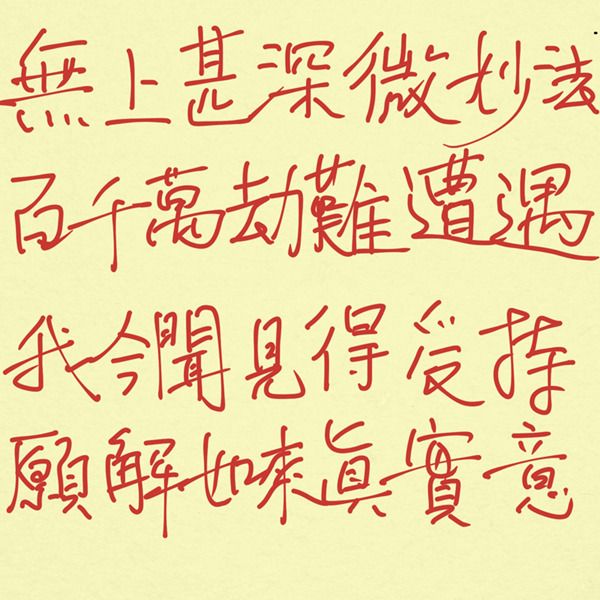 無上甚深微妙法
百千萬劫難遭遇
我今聞見得受持
願解如來眞實意